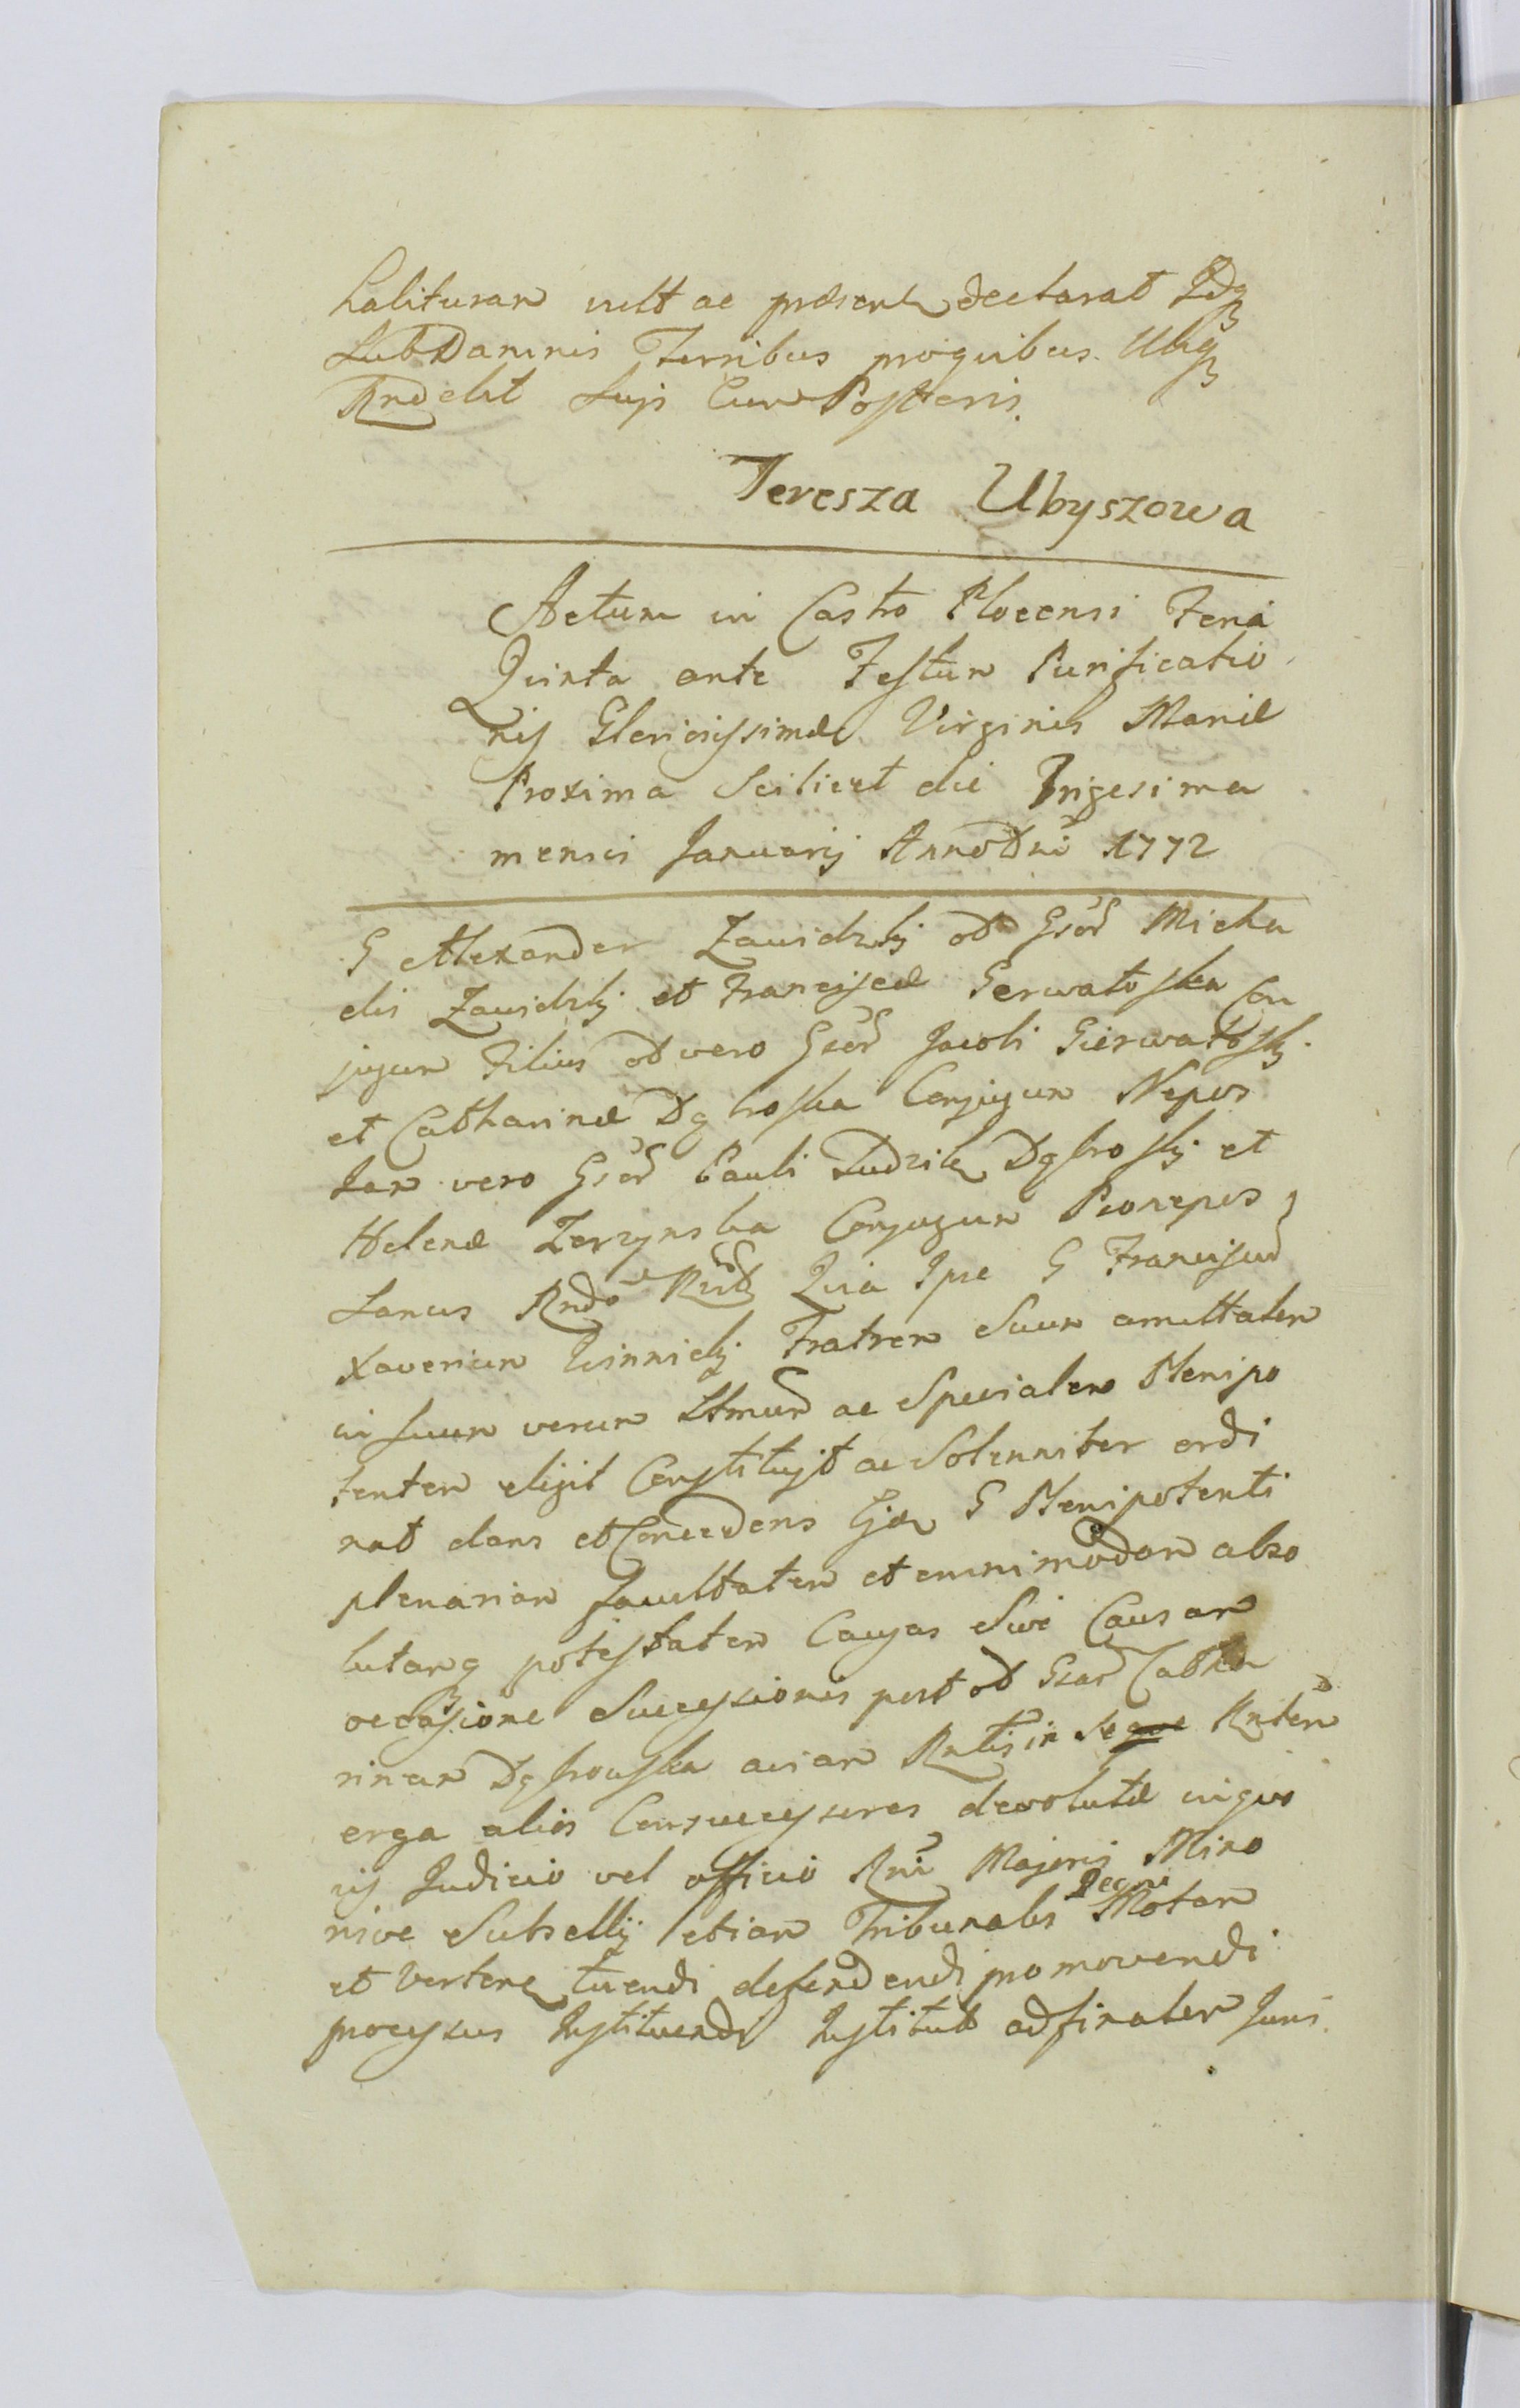 halituram vult ac præsent declarat Idq
Sub Damnis Terribus pro quibus Ubiq
Rndebt Susi Cum Posteris.
Teresza Ubyszowa
Actum in Castro Plocensi Feria
Quinta ante Festum Purificatio
nis Gloriosissimæ Virginis Mariæ
Proxima Scilicet die Trigesima
mensis Januarij Anno Dni 1772
G Alexander Zawidzkj od Gsor Micha
elis Zawidzkj et Francisce Gerwatoska Con
jugum Filius od vero Gsor Jacobi Gierwatoskj
et Catharinæ Dabroska Conjugum Nepos
Jam vero Gsor Pauli Ludzik Dąbroskj et
Helenæ Zerzynska Conjugum Pronepos
Sanus Rndo Quia Ipse G Franciscum
Xaverium Winnickj Fratrem Suum amittalem
in suum verum Ltmum ac Specialem Plenipo
tentem eligit Constituit ac Solenniter ordi
nat dans et Concedens G Plenipotenti
plenariam facultatem et omnimodam abso
lutamq potestatem Causas Sive Causam
occasione Successionis post od Gsam Catha
rinam Dąbrowska aviam Rntis in se Rntem
erga alios Consuccessores devolutæ in quo
vis Judicio vel officio Rni Majoris Mino
risve Subsellij etiam Tribunalis Regni Motam
et Vertenq tuendi defendendi promovendi
processus Instituendi Institut ad finalem Juris